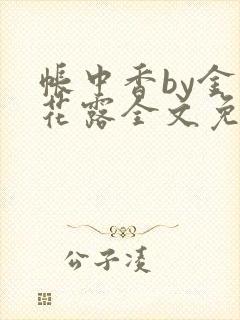 帐中香by金
花露全文免
公子凌